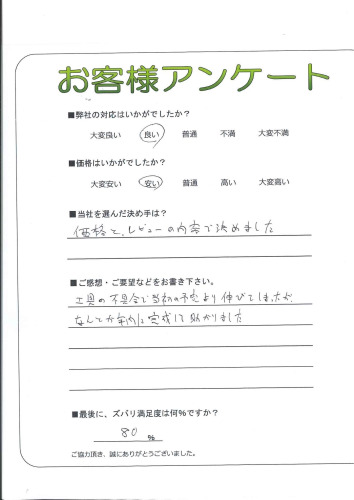 お客様アンケート
■弊社の対応はいかがでしたか？
大変良い 良い 普通 不満 大変不満
■価格はいかがでしたか？
大変安い 安い 普通 高い 大変高い
■当社を選んだ決め手は？
価格と、レビューの内容で決めました
■ご感想・ご要望などをお書き下さい。
工具の不具合で当初の予定より伸びてしまったが
なんとか年内に完成して助かりました
■最後に、ズバリ満足度は何%ですか？
80 %
ご協力頂き、誠にありがとうございました。